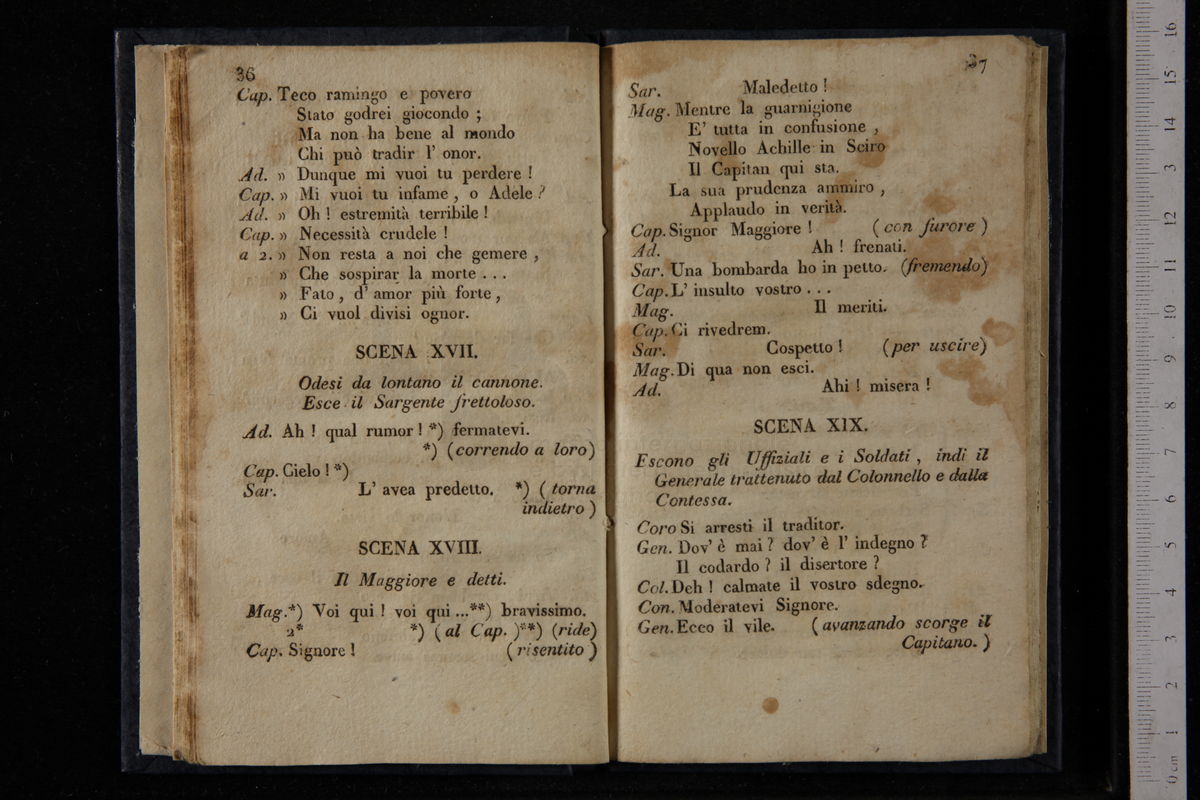 36
Cap. Teco ramingo e povero
Stato godrei giocondo ;
Ma non ha bene al mondo
Chi può tradir l' onor.
Ad. » Dunque mi vuoi tu perdere !
Cap. » Mi vuoi tu infame , o Adele ?
Ad. » Oh ! estremità terribile !
Cap. » Necessità crudele !
a 2. » Non resta a noi che gemere ,
» Che sospirar la morte . . .
» Fato , d' amor più forte ,
» Ci vuol divisi ognor.
SCENA XVII.
Odesi da lontano il cannone.
Esce il Sargente frettoloso.
Ad. Ah ! qual rumor ! *) fermatevi.
*) (correndo a loro)
Cap. Cielo ! *)
Sar. L' avea predetto. *) ( torna
indietro )
SCENA XVIII.
Il Maggiore e detti.
Mag.*) Voi qui ! voi qui ...**) bravissimo.
2* *) ( al Cap. )**) (ride)
Cap. Signore ! ( risentito )
37
Sar. Maledetto !
Mag. Mentre la guarnigione
E' tutta in confusione ,
Novello Achille in Sciro
Il Capitan qui sta.
La sua prudenza ammiro ,
Applaudo in verità.
Cap. Signor Maggiore ! ( con furore )
Ad. Ah ! frenati.
Sar. Una bombarda ho in petto. (fremendo)
Cap. L' insulto vostro . . .
Mag. Il meriti.
Cap. Ci rivedrem.
Sar. Cospetto ! (per uscire)
Mag. Di qua non esci.
Ad. Ahi ! misera !
SCENA XIX.
Escono gli Uffiziali e i Soldati , indi il
Generale trattenuto dal Colonnello e dalla
Contessa.
Coro Si arresti il traditor.
Gen. Dov' è mai ? dov' è l' indegno ?
Il codardo ? il disertore ?
Col. Deh ! calmate il vostro sdegno.
Con. Moderatevi Signore.
Gen. Ecco il vile. ( avanzando scorge il
Capitano. )
0 cm 1 2 3 4 5 6 7 8 9 10 11 12 13 14 15 16